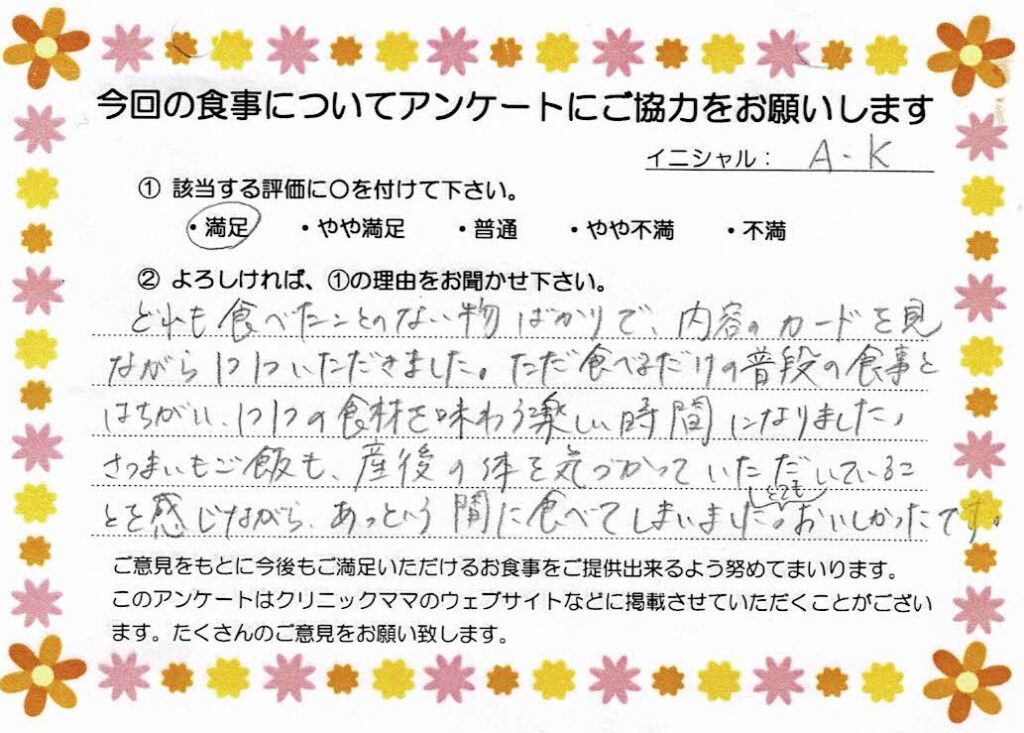 今回の食事についてアンケートにご協力をお願いします
イニシャル： A・K
① 該当する評価に〇を付けて下さい。
・満足 ・やや満足 ・普通 ・やや不満 ・不満
② よろしければ、①の理由をお聞かせ下さい。
どれも食べたことのない物ばかりで、内容のカードを見
ながら1つ1ついただきました。ただ食べるだけの普段の食事と
はちがい、1つ1つの食材を味わう楽しい時間になりました。
さつまいもご飯も、産後の体を気づかっていただいているこ
とを感じながら、あっという間に食べてしまいました。とてもおいしかったです。
ご意見をもとに今後もご満足いただけるお食事をご提供出来るよう努めてまいります。
このアンケートはクリニックママのウェブサイトなどに掲載させていただくことがござい
ます。たくさんのご意見をお願い致します。